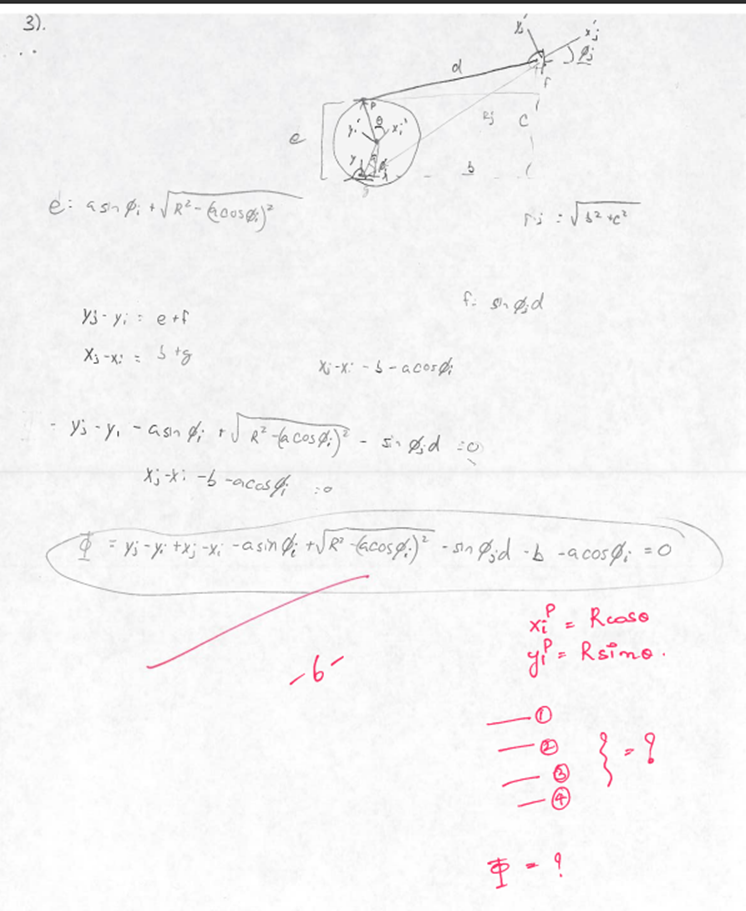 3).
yj' xj'
ϕj
d
f
P
θ
e yi' xi'
rj c
y
b
e = a sin ϕi + √R² - (a cos ϕi)²
rj = √b² + c²
f = sin ϕj d
yj - yi = e + f
xj - xi = b + g
xj - xi - b - a cos ϕi
- yj - yi - a sin ϕi + √R² - (a cos ϕi)² - sin ϕj d = 0
xj - xi - b - a cos ϕi = 0
Φ = yj - yi + xj - xi - a sin ϕi + √R² - (a cos ϕi)² - sin ϕj d - b - a cos ϕi = 0
xi^P = R cos θ
yi^P = R sin θ.
-6-
— ①
— ②
} = ?
— ③
— ④
Φ = ?